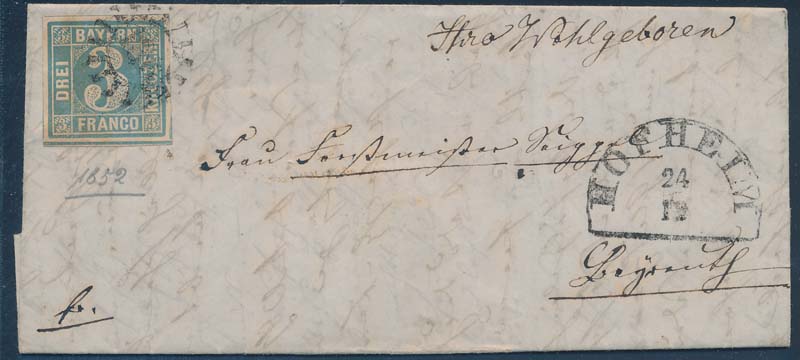 BAYERN
DREI
3
KREUZER
FRANCO
Ihro Wohlgeboren
Frau Forstmeister
HOFHEIM
24
12
1852
Bayreuth
fr.